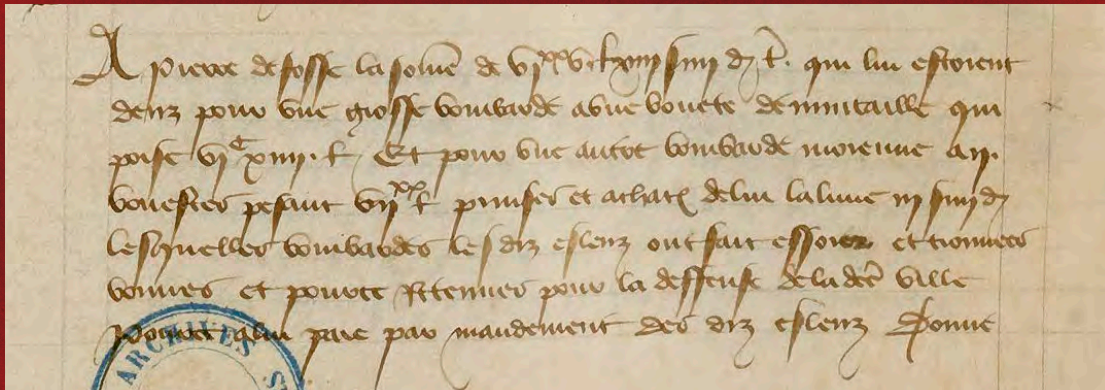 A Pierre de fosse la somē de vjxx vj £ xiij s iiij d t. qui lui estoient
deuz pour une grosse bombarde a une bouete de mitaille qui
poise vjc xiiij. £ Et pour une autre bombarde moienne a ij.
bouestes pesant viijxx £ prinses et achatez de lui la livre iij s iiij d
lesquelles bombardes les diz esleuz ont fait essoier et trouvees
bonnes et pource retenues pour la deffense de la dcē ville
Pource a lui paie par mandement des diz esleuz Donne
ARCHIVES